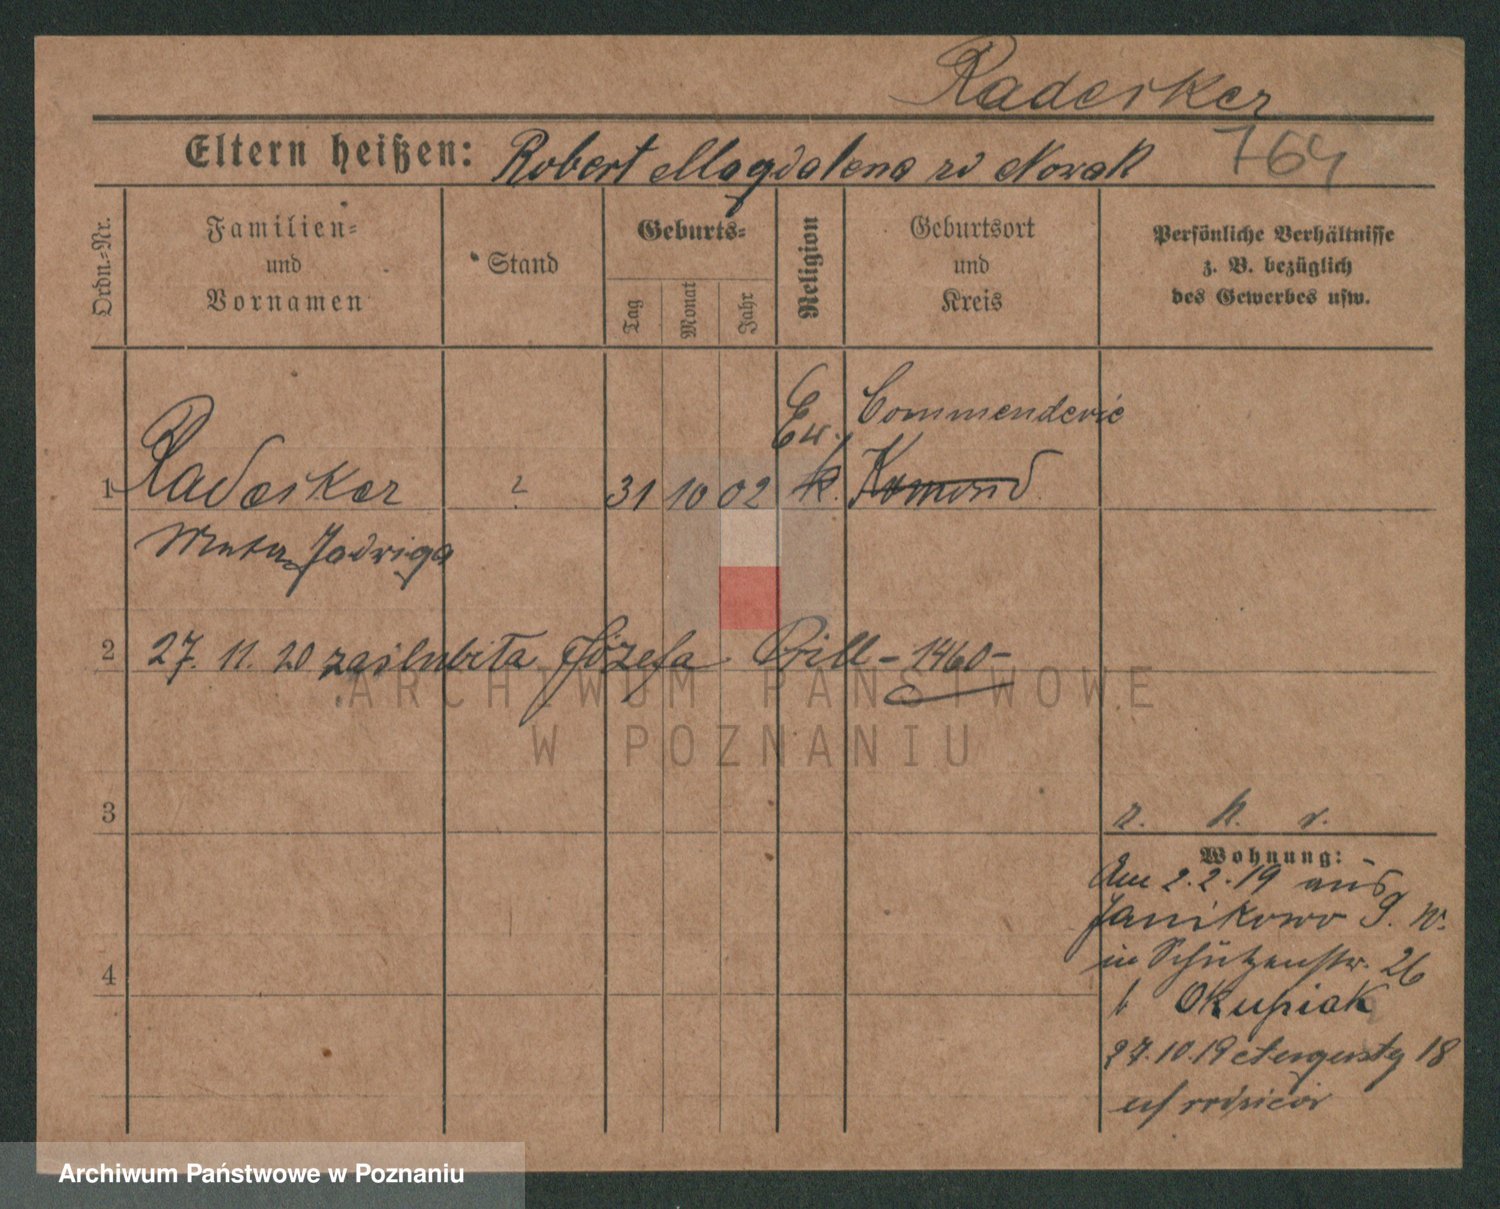 Radesker
Eltern heißen: Robert Magdalena zd Nowak
764
Ordn.-Nr.
Familien-
und
Vornamen
Stand
Geburts-
Tag
Monat
Jahr
Religion
Geburtsort
und
Kreis
Persönliche Verhältnisse
z. B. bezüglich
des Gewerbes usw.
Ew. Commenderie
1 Radesker 31 10 02 k. Komend
Jadwiga
2 27. 11. 20 zaślubiła Józefa Prill - 1460 -
ARCHIWUM PAŃSTWOWE
W POZNANIU
3
r. k. v.
Wohnung:
Am 2.2.19 aus
Janikowo G. W.
in Schützenstr. 26
b Okupiak
4
27.10.19 18
u/ rodziców
Archiwum Państwowe w Poznaniu